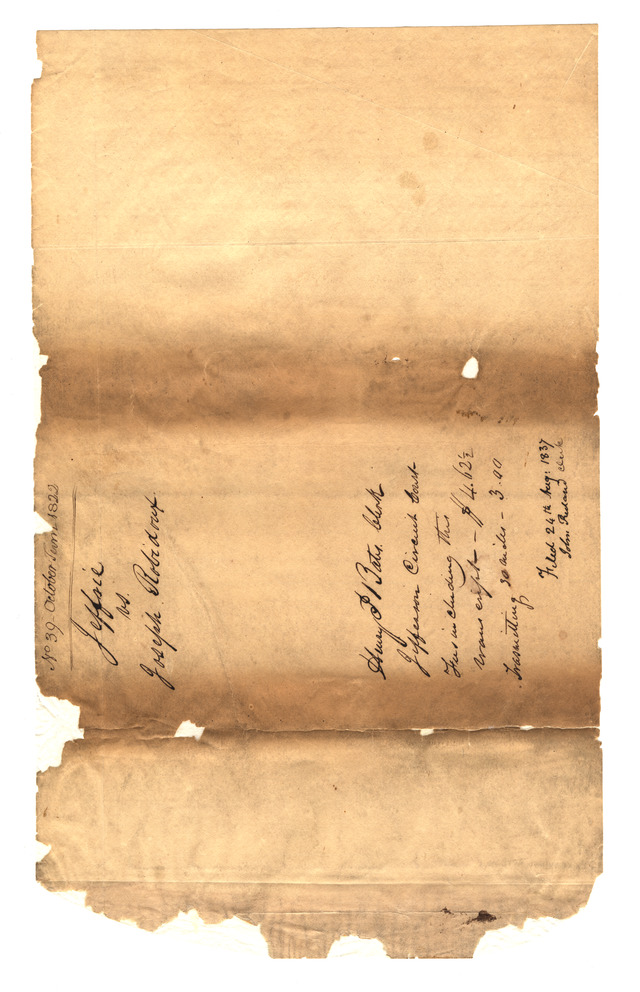 No 39. October Term 1822
Jeffrie
vs.
Joseph Robidoux
Henry P Bates Clerk
Jefferson Circuit Court
Fees including this
transcript — $4.62½
Trasmitting 30 miles — 3.00
Filed 24th Aug: 1837
John Ruland clerk